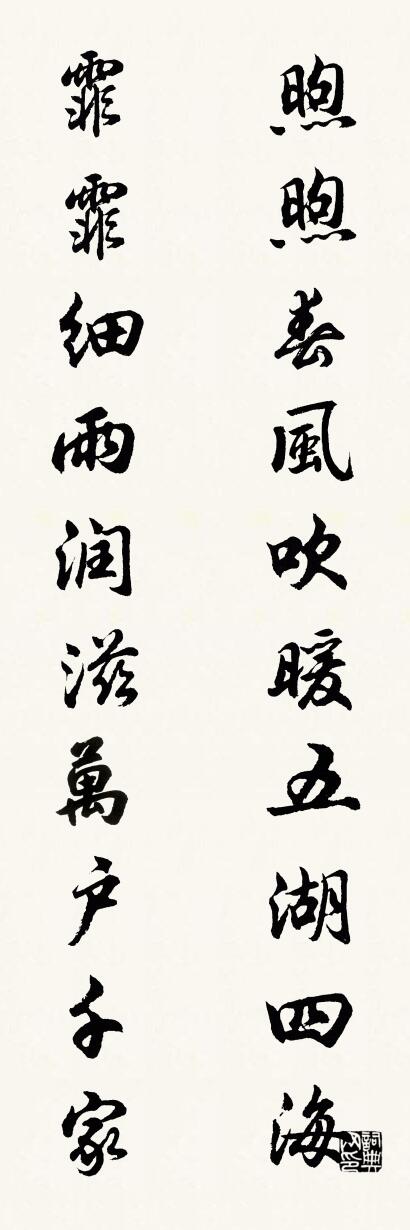 煦煦春風吹暖五湖四海
霏霏细雨润滋萬户千家